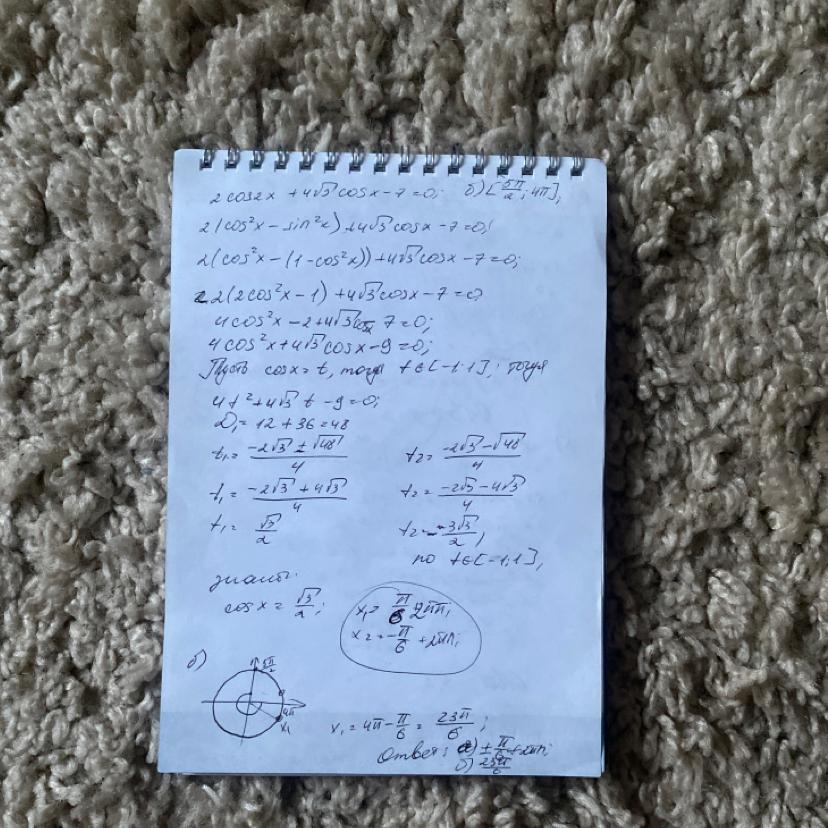 2cos2x + 4√3 cosx - 7 = 0; б) [5π/2; 4π];
2(cos²x - sin²x) + 4√3 cosx - 7 = 0;
2(cos²x - (1 - cos²x)) + 4√3 cosx - 7 = 0;
2(2cos²x - 1) + 4√3 cosx - 7 = 0
4cos²x - 2 + 4√3 cosx 7 = 0;
4cos²x + 4√3 cosx - 9 = 0;
Пусть cosx = t, тогда t∈[-1;1]; тогда
4t² + 4√3 t - 9 = 0;
D₁ = 12 + 36 = 48
t₁ = (-2√3 ± √48)/4 t₂ = (-2√3 - √48)/4
t₁ = (-2√3 + 4√3)/4 t₂ = (-2√3 - 4√3)/4
t₁ = √3/2 t₂ = -3√3/2,
но t∈[-1;1],
значит:
cosx = √3/2; x₁ = π/6 2πn;
x₂ = -π/6 + 2πn;
б)
5π/2
4π
x₁
x₁ = 4π - π/6 = 23π/6;
Ответ: а) ±π/6 + 2πn;
б) 23π/6